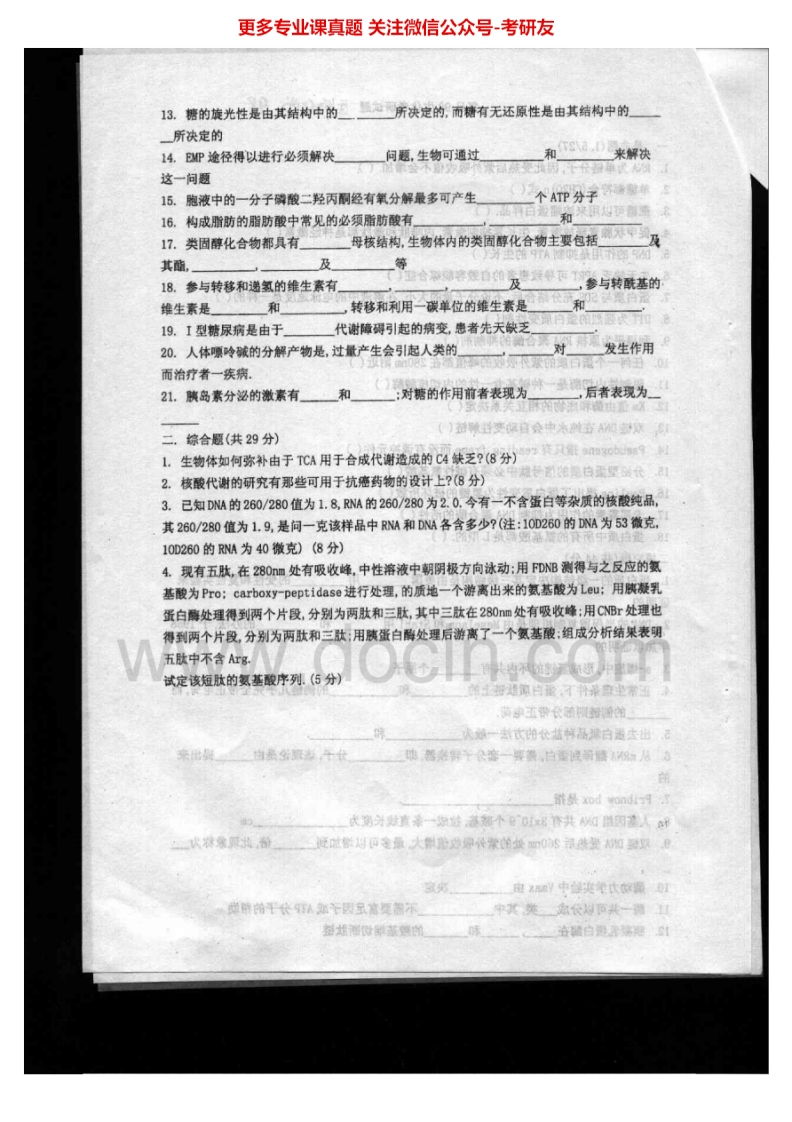 更多专业课真题 关注微信公众号-考研友
13. 糖的旋光性是由其结构中的__ ______所决定的,而糖有无还原性是由其结构中的_____
__所决定的
14. EMP 途径得以进行必须解决________问题,生物可通过__________和_________来解决
这一问题
15. 胞液中的一分子磷酸二羟丙酮经有氧分解最多可产生_________个ATP分子
16. 构成脂肪的脂肪酸中常见的必须脂肪酸有__________,__________和__________
17. 类固醇化合物都具有________母核结构,生物体内的类固醇化合物主要包括________及
其酯,__________,_________及________等
18. 参与转移和递氢的维生素有________,________,_________及________,参与转酰基的
维生素是_________和_________,转移和利用一碳单位的维生素是_______和_________.
19. I型糖尿病是由于________代谢障碍引起的病变,患者先天缺乏__________.
20. 人体嘌呤碱的分解产物是,过量产生会引起人类的_______,______对______发生作用
而治疗者一疾病.
21. 胰岛素分泌的激素有______和______;对糖的作用前者表现为________,后者表现为__
______
二. 综合题(共 29 分)
1. 生物体如何弥补由于 TCA 用于合成代谢造成的 C4 缺乏?(8 分)
2. 核酸代谢的研究有那些可用于抗癌药物的设计上?(8 分)
3. 已知DNA的260/280值为1.8,RNA的260/280为2.0.今有一不含蛋白等杂质的核酸纯品,
其260/280值为1.9,是问一克该样品中RNA和DNA各含多少?(注:1OD260的DNA为53微克,
1OD260 的 RNA 为 40 微克) (8 分)
4. 现有五肽,在 280nm 处有吸收峰,中性溶液中朝阴极方向泳动;用 FDNB 测得与之反应的氨
基酸为 Pro; carboxy-peptidase 进行处理,的质地一个游离出来的氨基酸为 Leu; 用胰凝乳
蛋白酶处理得到两个片段,分别为两肽和三肽,其中三肽在280nm处有吸收峰;用CNBr处理也
得到两个片段,分别为两肽和三肽;用胰蛋白酶处理后游离了一个氨基酸;组成分析结果表明
五肽中不含 Arg.
www.docin.com
试定该短肽的氨基酸序列.(5 分)